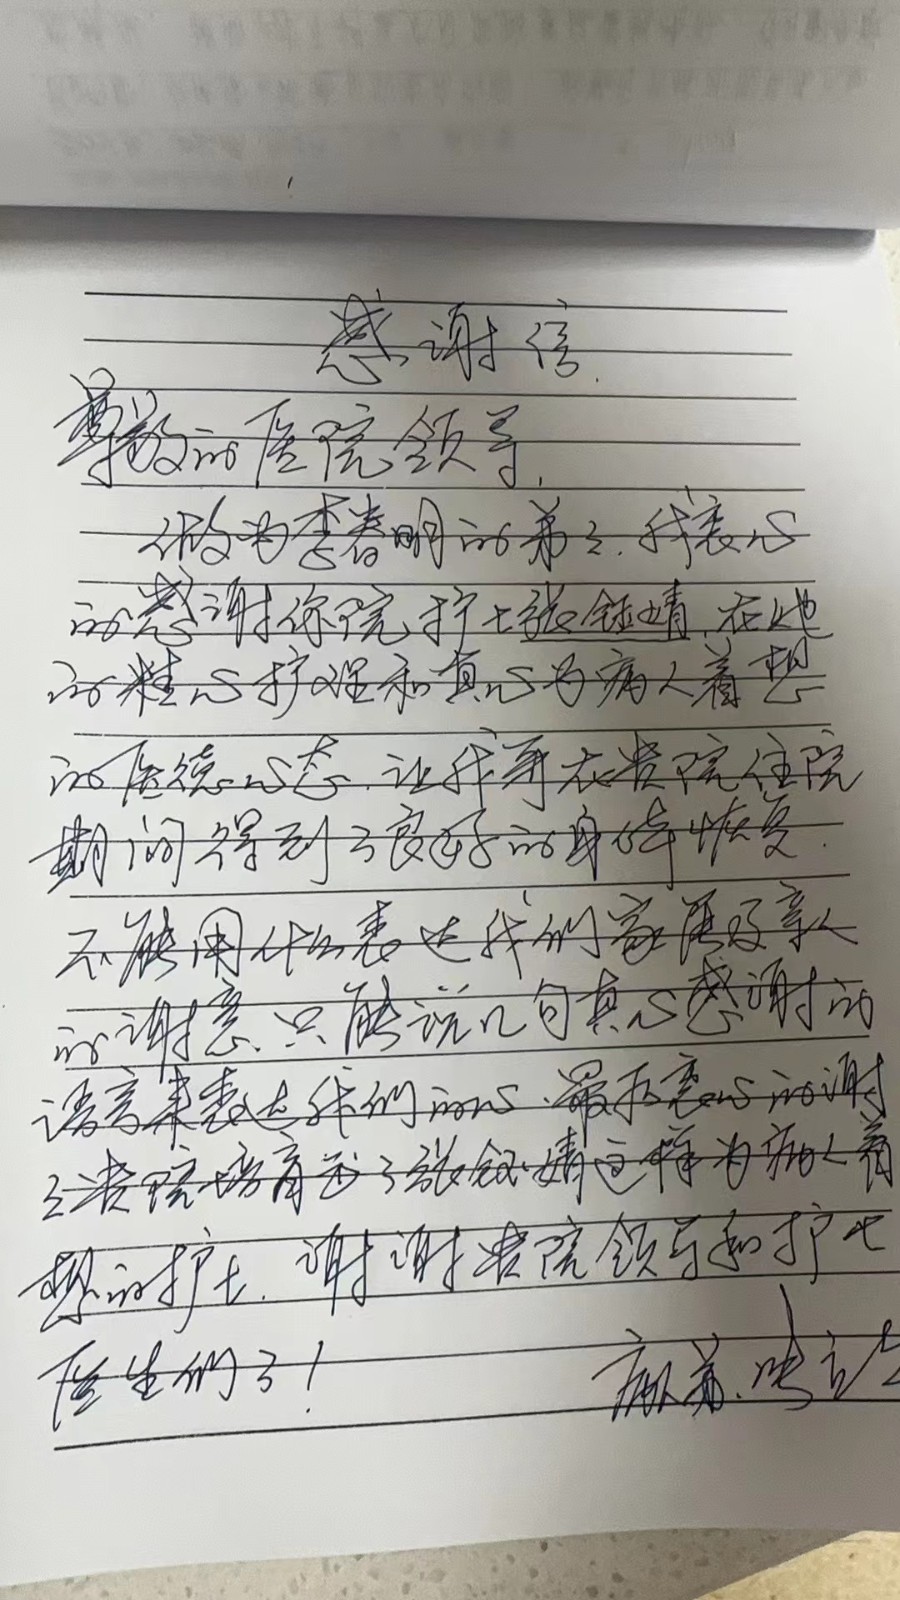 感谢信
尊敬的医院领导,
做为李春明的弟弟.我衷心
的感谢你院护士张钰婧.在她
的精心护理和真心为病人着想
的医德心态.让我哥在贵院住院
期间得到了良好的身体恢复.
不能用什么表达我们家属及亲人
的谢意.只能说几句真心感谢的
语言来表达我们的心.最后衷心的谢
谢贵院培育出了张钰婧这样为病人着
想的护士.谢谢贵院领导和护士
医生们了!
病人弟.